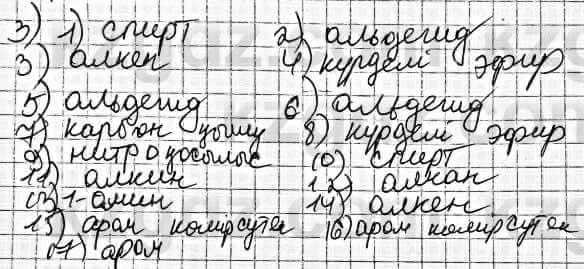 3) 1) спирт 2) альдегид
3) алкен 4) күрделі эфир
5) альдегид 6) альдегид
7) карбон қышқ 8) күрделі эфир
9) нитроқосылыс 10) спирт
11) алкин 12) алкан
13) 1-амин 14) алкен
15) аром көмірсутек 16) аром көмірсутек
17) аром